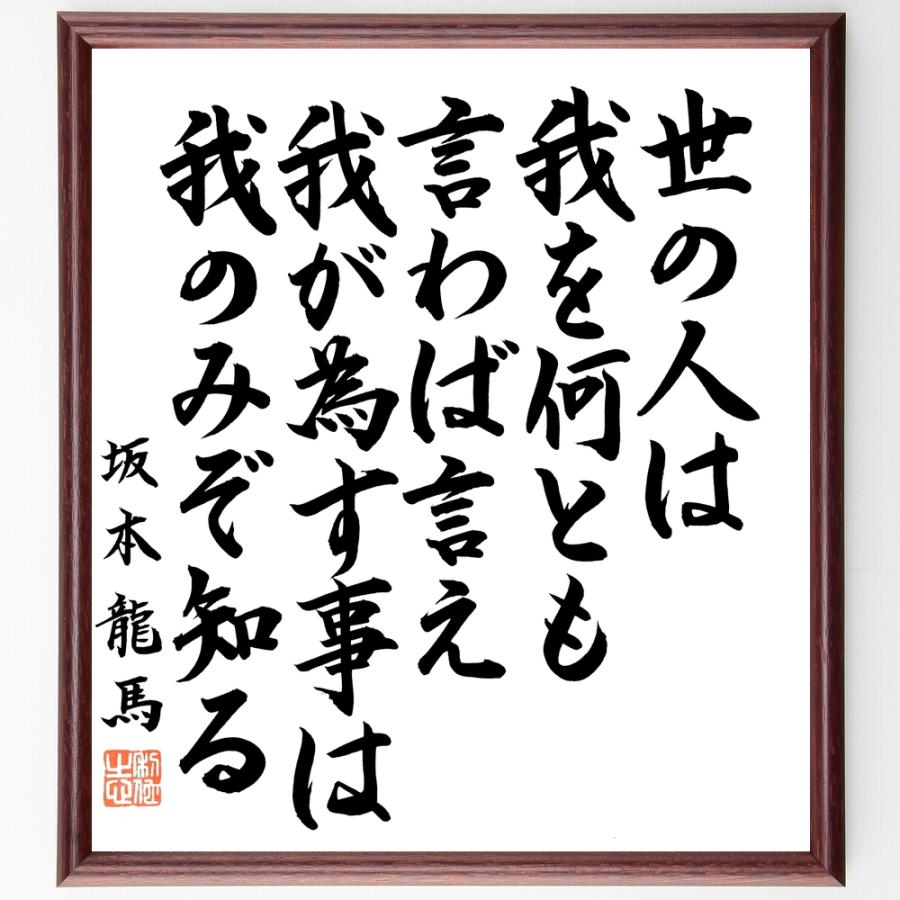 世の人は
我を何とも
言わば言え
我が為す事は
我のみぞ知る
坂本龍馬